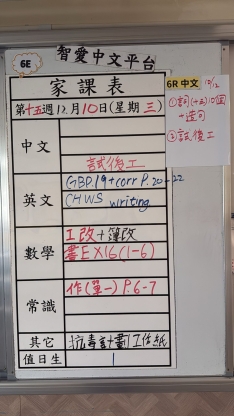 智愛中文平台
6E
家課表
第十五週12月10日(星期三)
中文
試後工
英文
GBD.19+corr P.20-22
CHWS writing
數學
工改+簿改
書EX16(1-6)
常識
作(單一)P.6-7
其它
抗毒計劃工作紙
值日生
1
6R 中文 10/12
①詞(十五)10個
+造句
②試後工